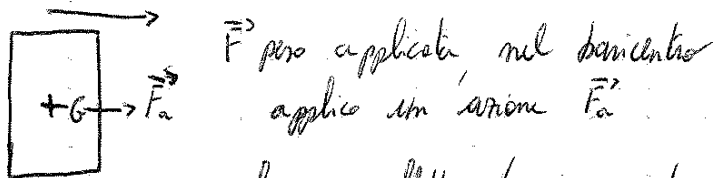 F⃗ peso applicata nel baricentro
G F⃗a applico un'azione F⃗a